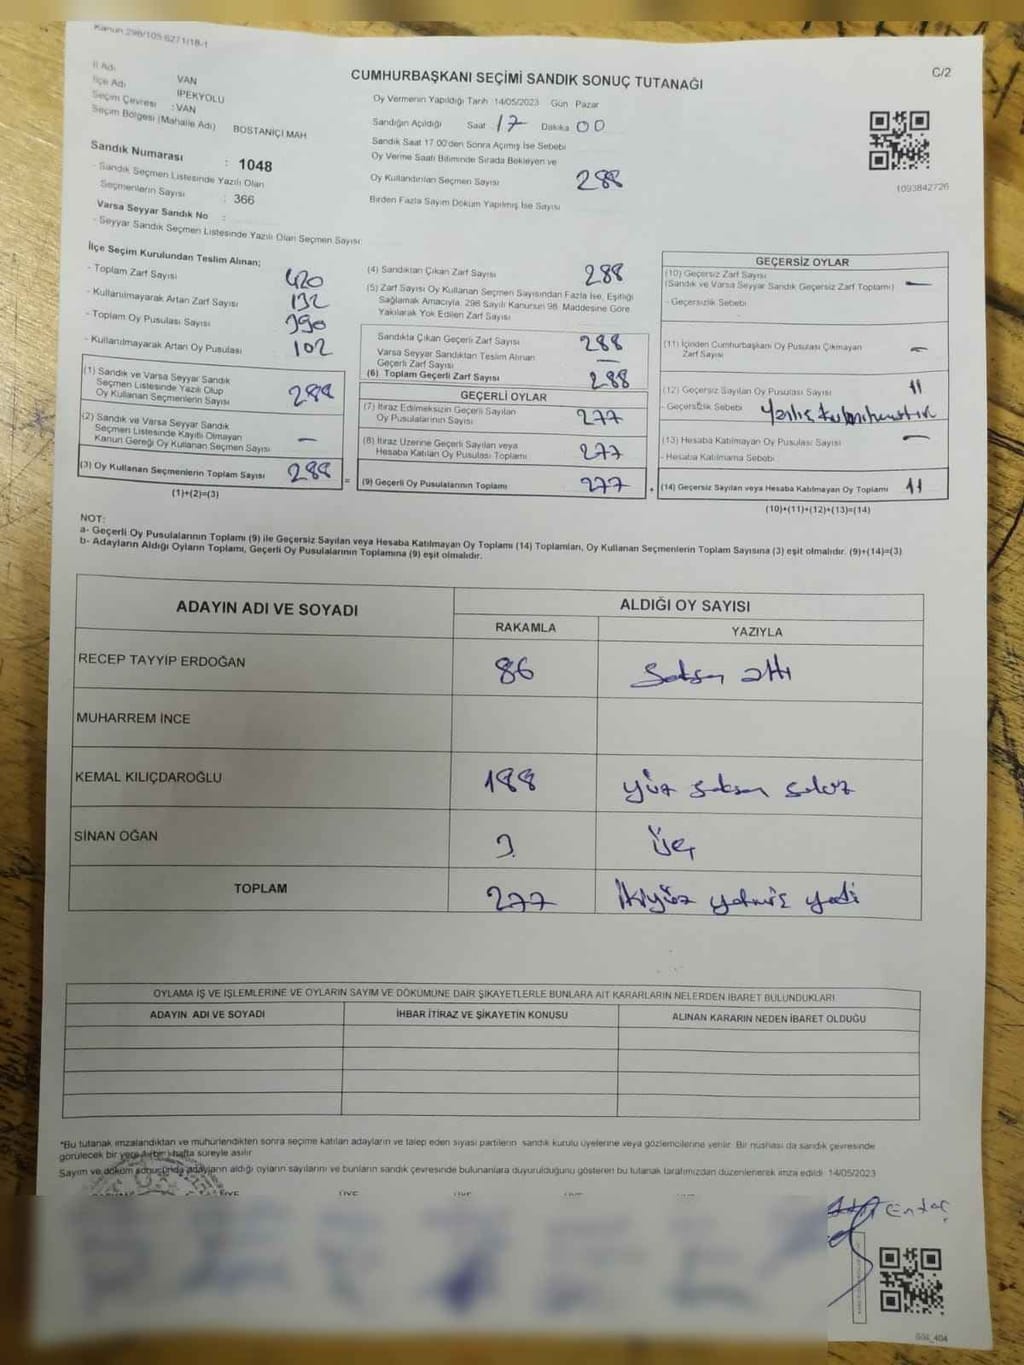 Kanun 298/105 6271/18-1
C/2
CUMHURBAŞKANI SEÇİMİ SANDIK SONUÇ TUTANAĞI
İl Adı VAN
İlçe Adı İPEKYOLU
Seçim Çevresi :VAN
Seçim Bölgesi (Mahalle Adı) BOSTANİÇİ MAH
Sandık Numarası : 1048
- Sandık Seçmen Listesinde Yazılı Olan
Seçmenlerin Sayısı : 366
Varsa Seyyar Sandık No :
- Seyyar Sandık Seçmen Listesinde Yazılı Olan Seçmen Sayısı:
Oy Vermenin Yapıldığı Tarih 14/05/2023 Gün Pazar
Sandığın Açıldığı Saat 17 Dakika 00
Sandık Saat 17.00'den Sonra Açımış İse Sebebi
Oy Verme Saati Bitiminde Sırada Bekleyen ve
Oy Kullandırılan Seçmen Sayısı 288
Birden Fazla Sayım Döküm Yapılmış İse Sayısı
1093842726
İlçe Seçim Kurulundan Teslim Alınan;
- Toplam Zarf Sayısı 420
- Kullanılmayarak Artan Zarf Sayısı 132
- Toplam Oy Pusulası Sayısı 390
- Kullanılmayarak Artan Oy Pusulası 102
(1) Sandık ve Varsa Seyyar Sandık
Seçmen Listesinde Yazılı Olup
Oy Kullanan Seçmenlerin Sayısı 288
(2) Sandık ve Varsa Seyyar Sandık
Seçmen Listesinde Kayıtlı Olmayan
Kanun Gereği Oy Kullanan Seçmen Sayısı —
(3) Oy Kullanan Seçmenlerin Toplam Sayısı 288
(1)+(2)=(3)
(4) Sandıktan Çıkan Zarf Sayısı 288
(5) Zarf Sayısı Oy Kullanan Seçmen Sayısından Fazla İse, Eşitliği
Sağlamak Amacıyla, 298 Sayılı Kanunun 98. Maddesine Göre
Yakılarak Yok Edilen Zarf Sayısı
Sandıkta Çıkan Geçerli Zarf Sayısı 288
Varsa Seyyar Sandıktan Teslim Alınan
Geçerli Zarf Sayısı —
(6) Toplam Geçerli Zarf Sayısı 288
GEÇERLİ OYLAR
(7) İtiraz Edilmeksizin Geçerli Sayılan
Oy Pusulalarının Sayısı 277
(8) İtiraz Üzerine Geçerli Sayılan veya
Hesaba Katılan Oy Pusulası Toplamı 277
= (9) Geçerli Oy Pusulalarının Toplamı 277
GEÇERSİZ OYLAR
(10) Geçersiz Zarf Sayısı
(Sandık ve Varsa Seyyar Sandık Geçersiz Zarf Toplamı) —
- Geçersizlik Sebebi
(11) İçinden Cumhurbaşkanı Oy Pusulası Çıkmayan
Zarf Sayısı —
(12) Geçersiz Sayılan Oy Pusulası Sayısı 11
- Geçersizlik Sebebi Yanlış
(13) Hesaba Katılmayan Oy Pusulası Sayısı —
- Hesaba Katılmama Sebebi
+ (14) Geçersiz Sayılan veya Hesaba Katılmayan Oy Toplamı 11
(10)+(11)+(12)+(13)=(14)
NOT:
a- Geçerli Oy Pusulalarının Toplamı (9) ile Geçersiz Sayılan veya Hesaba Katılmayan Oy Toplamı (14) Toplamları, Oy Kullanan Seçmenlerin Toplam Sayısına (3) eşit olmalıdır. (9)+(14)=(3)
b- Adayların Aldığı Oyların Toplamı, Geçerli Oy Pusulalarının Toplamına (9) eşit olmalıdır.
ADAYIN ADI VE SOYADI ALDIĞI OY SAYISI
RAKAMLA YAZIYLA
RECEP TAYYİP ERDOĞAN 86 Seksen altı
MUHARREM İNCE
KEMAL KILIÇDAROĞLU 188 yüz seksen sekiz
SİNAN OĞAN 3 üç
TOPLAM 277 İkiyüz yetmiş yedi
OYLAMA İŞ VE İŞLEMLERİNE VE OYLARIN SAYIM VE DÖKÜMÜNE DAİR ŞİKAYETLERLE BUNLARA AİT KARARLARIN NELERDEN İBARET BULUNDUKLARI
ADAYIN ADI VE SOYADI İHBAR İTİRAZ VE ŞİKAYETİN KONUSU ALINAN KARARIN NEDEN İBARET OLDUĞU
*Bu tutanak imzalandıktan ve mühürlendikten sonra seçime katılan adayların ve talep eden siyasi partilerin sandık kurulu üyelerine veya gözlemcilerine verilir. Bir nüshası da sandık çevresinde
görülecek bir yere 1 (bir) hafta süreyle asılır
Sayım ve döküm sonucunda adayların aldığı oyların sayılarını ve bunların sandık çevresinde bulunanlara duyurulduğunu gösteren bu tutanak tarafımızdan düzenlenerek imza edildi. 14/05/2023